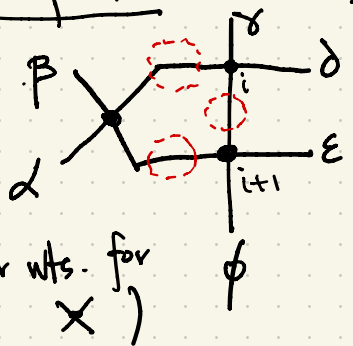 γ
β ∂
i
α ε
i+1
r wts. for φ
)